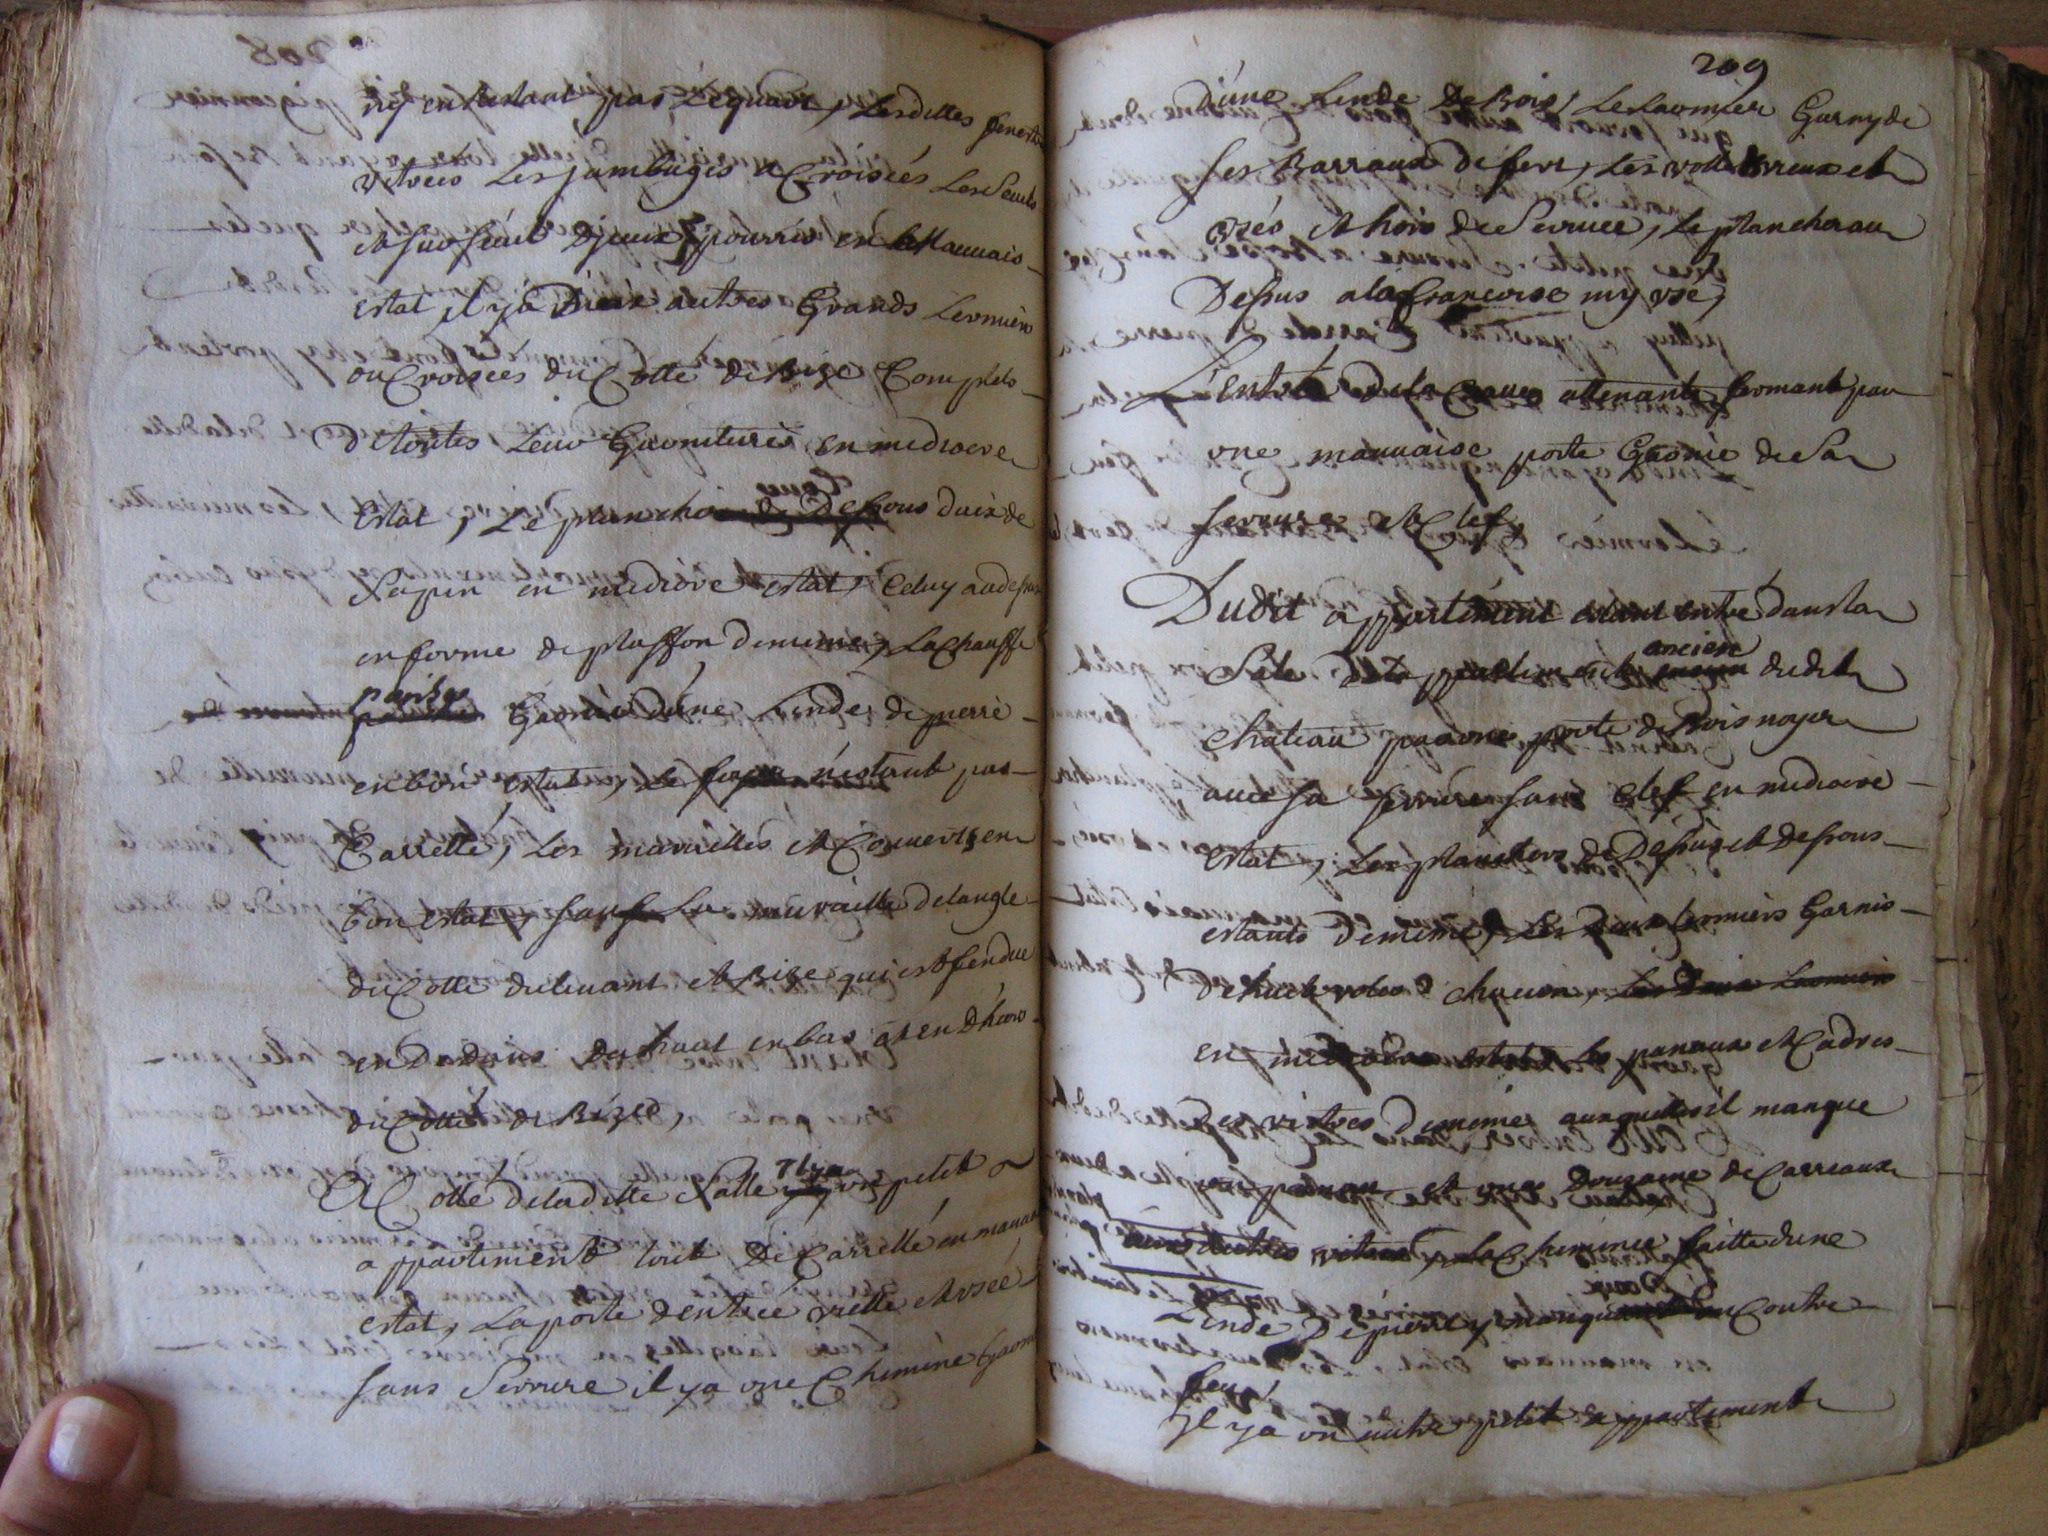 ny en restant pas Lequart, Lesdittes fenest
vitrees Les jambages & Croisées Les Seuls
et sur seuil d'jceux pourris en Mauuais
estat, il y a Deux autres Grands Larmiers
ou Croisees du Cotté de Bize Complets
de toutes Leur Garnitures en mediocre
Estat, Le plancher de Dessous duix de
Sapin en mediocre estat, Celuy au dessus
en forme de plaffon de meme, La Chauffe
panse Garnie d'une Linde de pierre
en bon estat, Le foyer n'estant pas
Carrellé, Les murailles et Couuerts en
bon estat, sauf La muraille de langle
du Cotté du leuant et Bize qui est fendue
en Dedans du haut en bas et en Dhors
du Cotté de Bize,
A Cotté de laditte Salle Il y a un petit
appartement tout DeCarrellé en mauuais
estat, La porte dentrée vielle et usée
sans Serrure il y a une Cheminé Garnie
209
d'une Linde De Bois, Le Larmier Garny de
ses Barraux de fert, Les vollet vieux et
usés et hors de Seruice, Le plancher au
Dessus a la francoise my usé,
L'entrée de la Caue attenante fermant par
une mauuaise porte Garnie de Sa
serrure et Clef,
Dudit appartement estant entré dans la
Sale de l'appartement ancien dudit
Chateau par une porte de Bois noyer
auec sa serrure sans Clef en mediocre
estat, Les planchers de Dessus et dessous
estants de meme, Les Deux Larmiers Garnis
de huit volets chacun, Les Deux Larmiers
en mediocre estat Les panaux et Cadres
des vistres de meme auxquelles il manque
un panau et une Douzaine de Carreaux
vitres, La Cheminée faitte d'une
Linde De pierre y manquant un Contre
feu,
Il y a un autre petit appartement